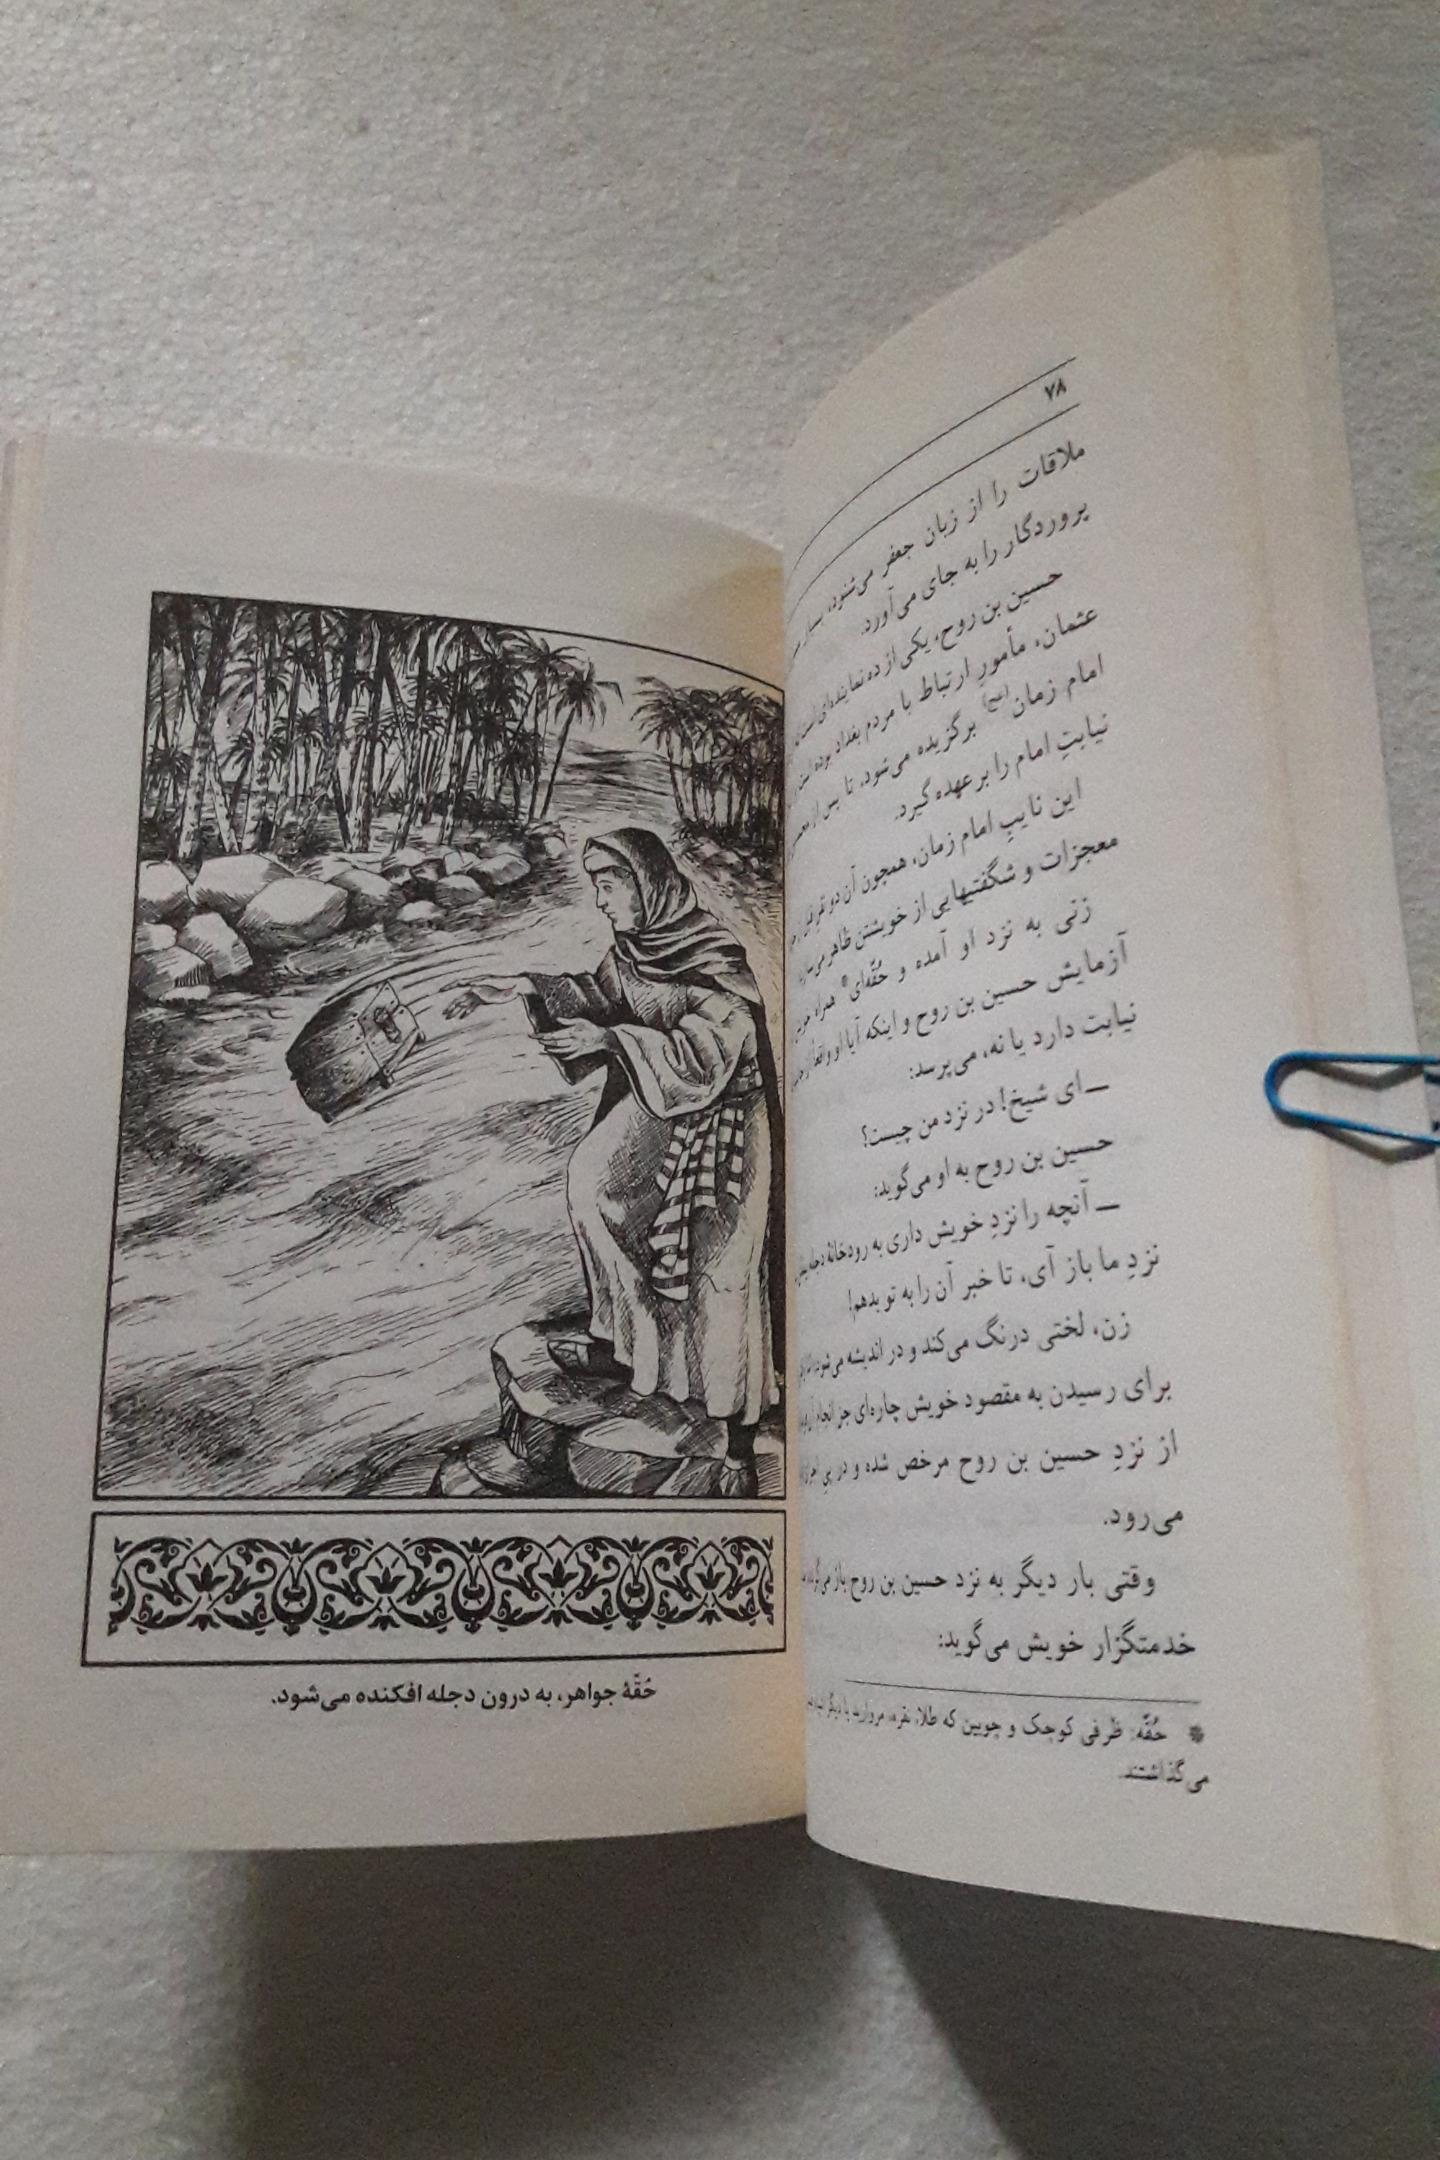 ۷۸
ملاقات را از زبان جعفر می‌شنود، بسیار
پروردگار را به جای می‌آورد.
حسین بن روح، یکی از ده نماینده‌ای است
عثمان، مأمورِ ارتباط با مردم بغداد بوده
امام زمان(عج) برگزیده می‌شود، تا پس از
نیابتِ امام را بر عهده گیرد.
این نایبِ امام زمان، همچون آن دو
معجزات و شگفتیهایی از خویشتن ظاهر
زنی به نزد او آمده و حُقّه‌ای* همراه
آزمایش حسین بن روح و اینکه آیا او واقعاً از
نیابت دارد یا نه، می‌پرسد:
ـــ ای شیخ! در نزد من چیست؟
حسین بن روح به او می‌گوید:
ـــ آنچه را نزدِ خویش داری به رودخانهٔ دجله
نزدِ ما باز آی، تا خبر آن را به تو بدهم!
زن، لختی درنگ می‌کند و در اندیشه می‌شود،
برای رسیدن به مقصود خویش چاره‌ای جز انجام
از نزدِ حسین بن روح مرخص شده و در پی
می‌رود.
وقتی بار دیگر به نزد حسین بن روح باز
خدمتگزار خویش می‌گوید:
* حُقّه: ظرفی کوچک و چوبین که طلا، نقره، مروارید یا دیگر
می‌گذاشتند.
حُقّهٔ جواهر، به درون دجله افکنده می‌شود.